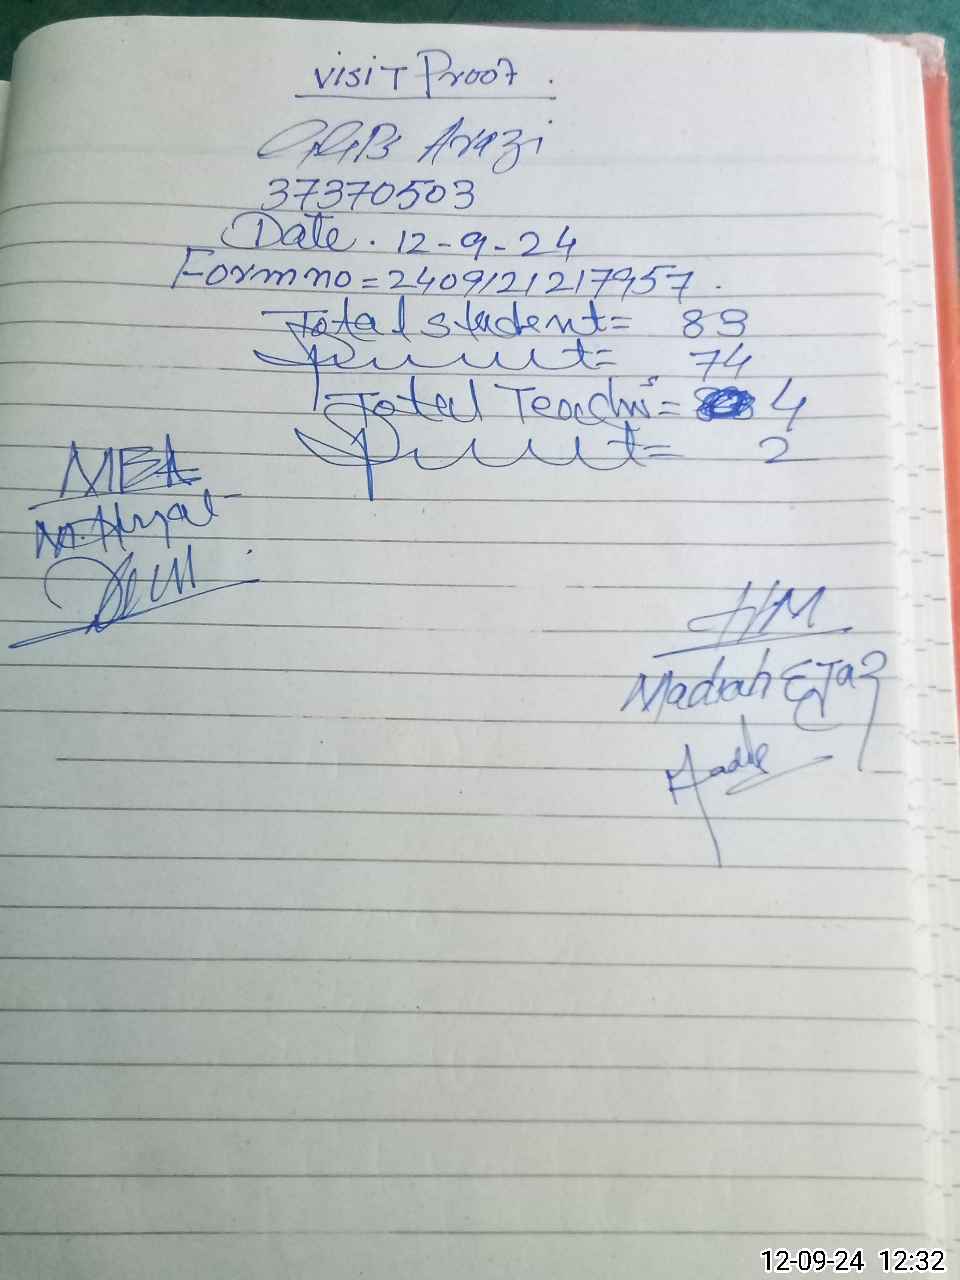 visit Proof.
Arazi
37370503
Date. 12-9-24
Form no = 2409121217957.
Total student = 89
74
Total Teachrs = 4
2
MEA
HM
Madiah Ejaz
12-09-24 12:32